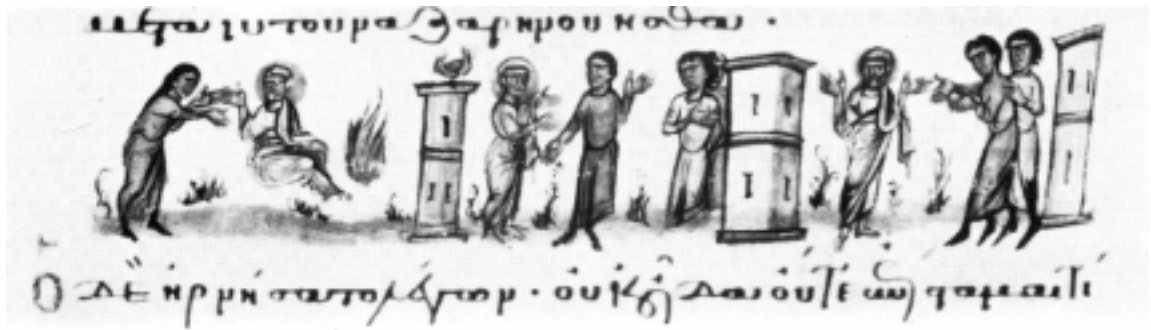 μετα ιυ του ναζαρηνου ησθα ·
Ο δὲ ἠρνήσατο λέγων · οὐκ οἶδα οὔτε ἐπίσταμαι τί